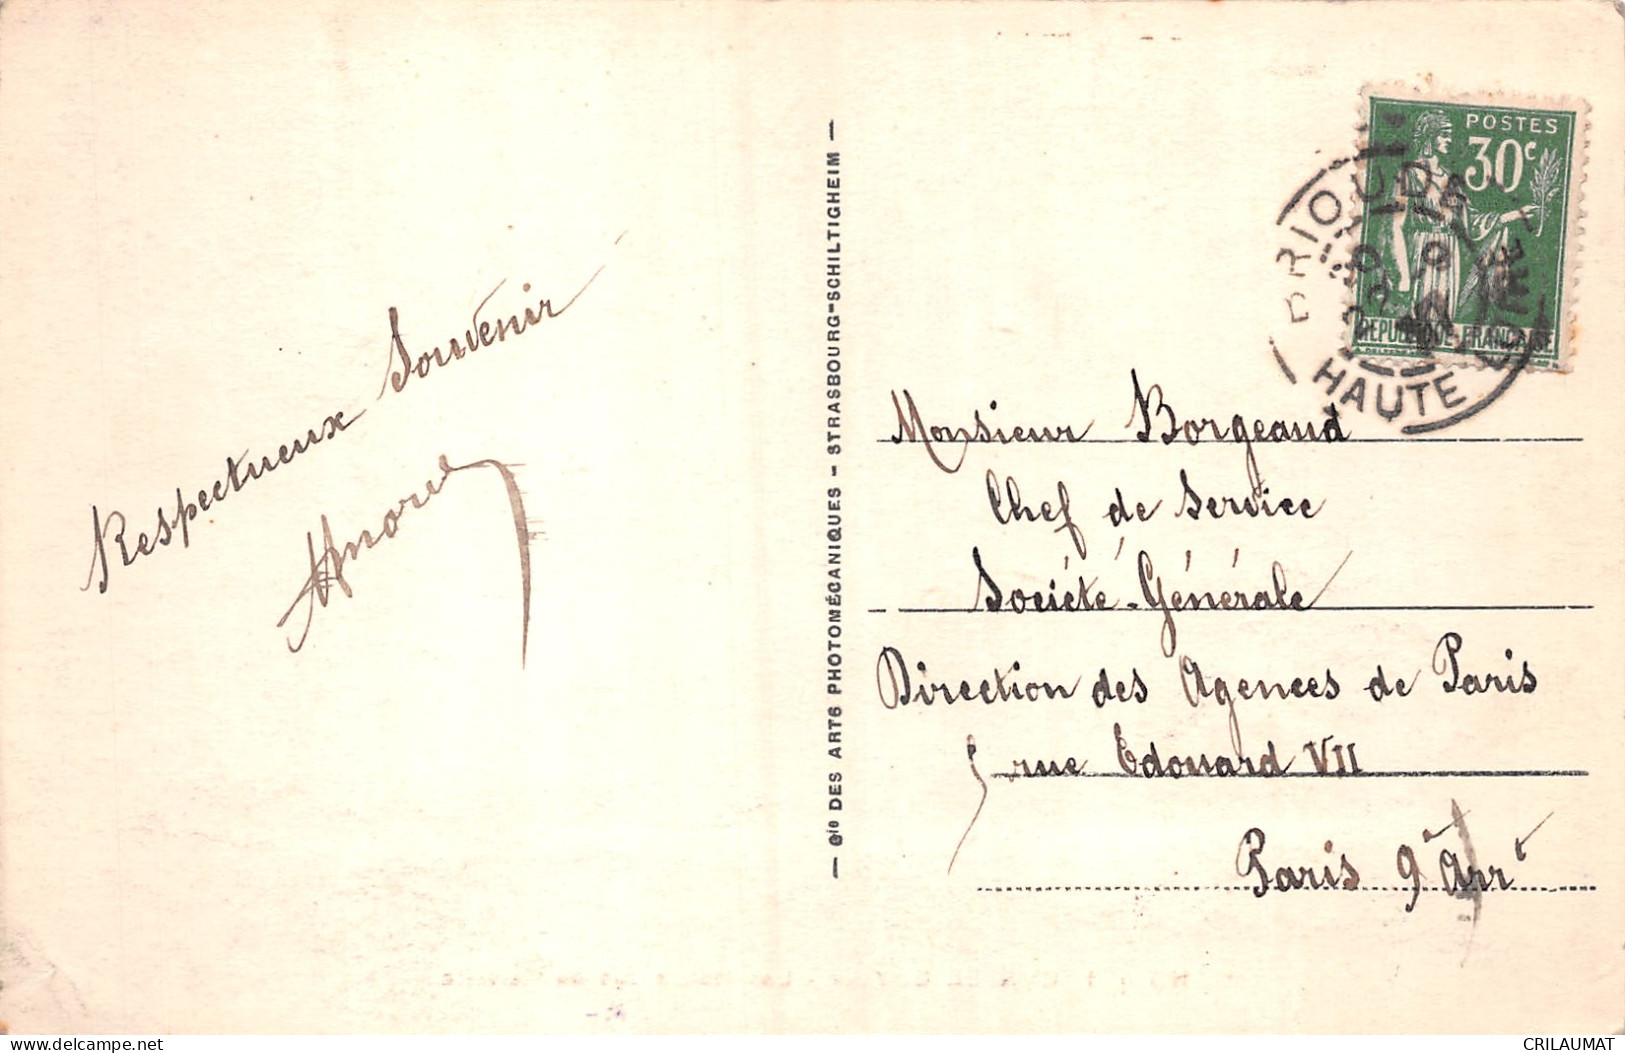 Respectueux Souvenir
— Cie DES ARTS PHOTOMÉCANIQUES - STRASBOURG-SCHILTIGHEIM —
POSTES
30c
REPUBLIQUE FRANCAISE
BRIOUDE
HAUTE LOIRE
Monsieur Borgeaud
Chef de Service
Société-Générale
Direction des Agences de Paris
5 rue Edouard VII
Paris 9e Arrt
delcampe.net
CRILAUMAT